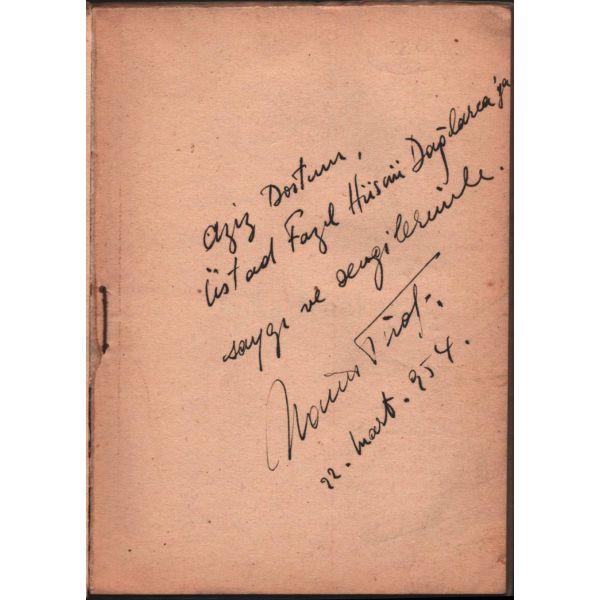 Aziz Dostum,
Üstad Fazıl Hüsnü Dağlarca'ya
saygı ve sevgilerimle.
22. Mart. 954.